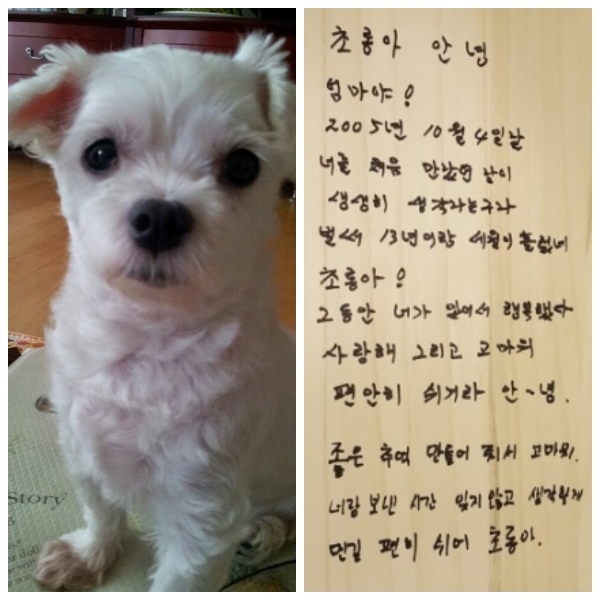 초롱아 안녕
엄마야!
2005년 10월 4일날
너를 처음 만났던 날이
생생히 생각나는구나
벌써 13년이랑 세월이 흘렀네
초롱아!
그동안 너가 있어서 행복했다
사랑해 그리고 고마워
편안히 쉬거라 안~녕.
좋은 추억 만들어 줘서 고마워.
너랑 보낸 시간 잊지않고 생각할게
먼길 편히 쉬어 초롱아.
Story